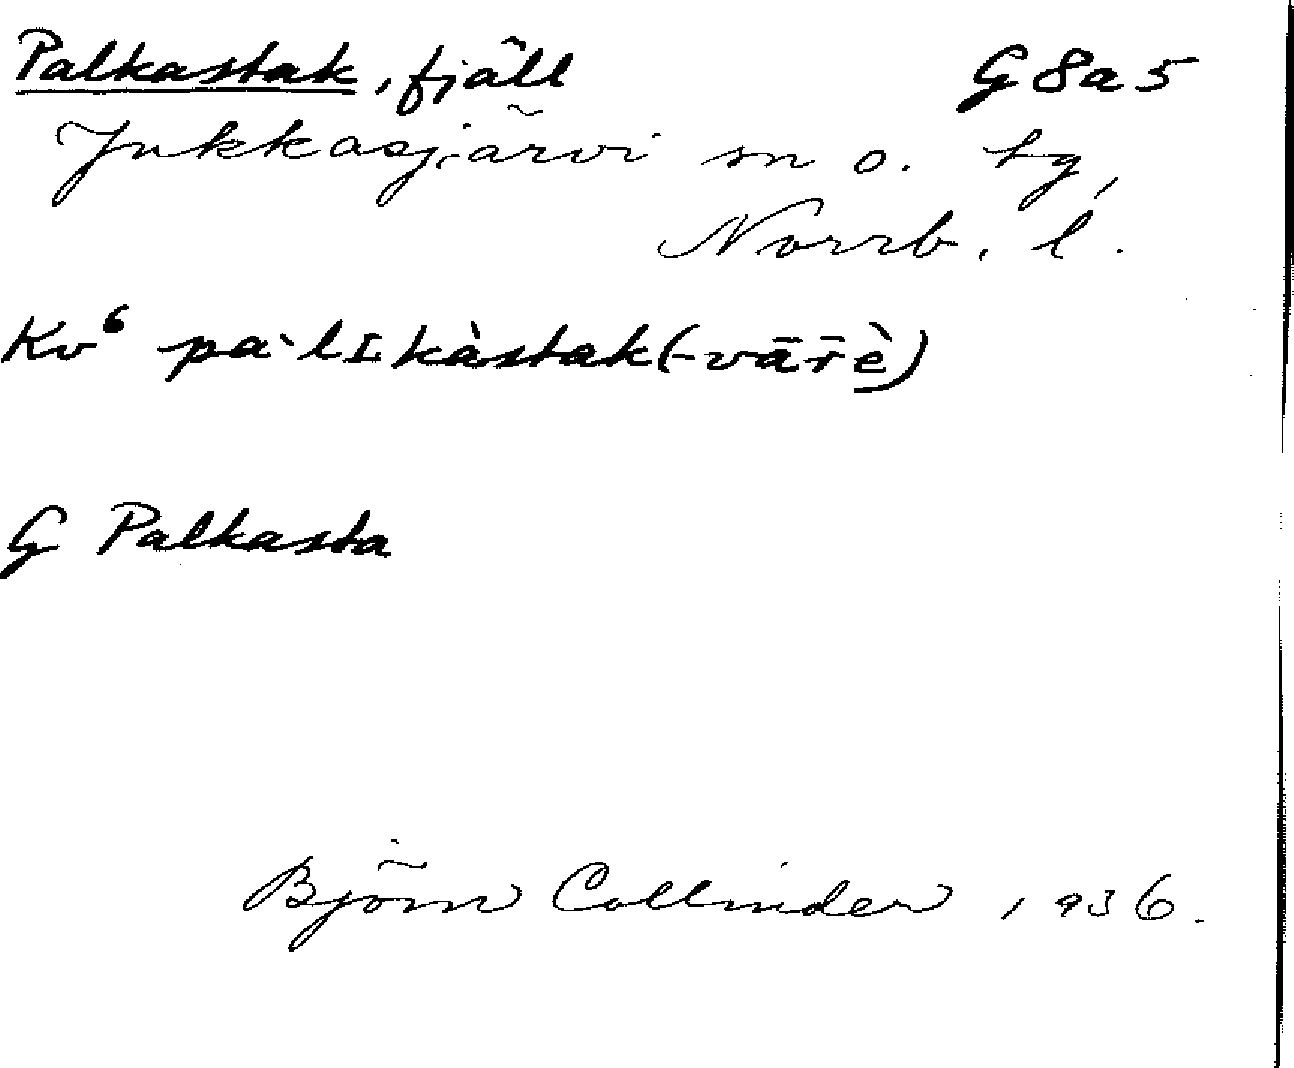 Palkastak, fjäll G 8 a 5
Jukkasjärvi sn o. tg,
Norrb. l.
Kv⁶ pa`lɪkàstak(-vārè̱)
G Palkasta
Björn Collinder, 1936.